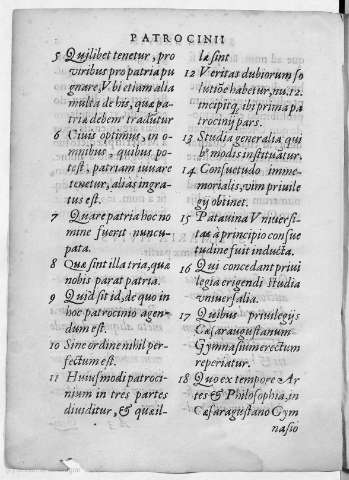 PATROCINII
5 Quilibet tenetur, pro
viribus pro patria pu
gnare, Vbi etiam alia
multa de his, quæ pa-
triæ debemꝰ traduntur
6 Ciuis optimus, in o-
mnibus, quibus po-
test, patriam iuuare
tenetur, aliàs ingra-
tus est.
7 Quare patria hoc no
mine fuerit nuncu-
pata.
8 Quæ sint illa tria, quæ
nobis parat patria.
9 Quid sit id, de quo in
hoc patrocinio agen-
dum est.
10 Sine ordine nihil per-
fectum est.
11 Huiusmodi patroci-
nium in tres partes
diuiditur, & quæ il-
læ sint
12 Veritas dubiorum so
lutiõe habetur, nu. 12.
incipitq, ibi prima pa
trocinij pars.
13 Studia generalia qui
bꝰ modis instituãtur.
14 Consuetudo imme-
morialis, vim priuile
gij obtinet.
15 Patauina Vniuersi-
tas à principio consue
tudine fuit inducta.
16 Qui concedant priui
legia erigendi studia
vniuersalia.
17 Quibus priuilegijs
Cæsaraugustanum
Gymnasium erectum
reperiatur.
18 Quo ex tempore Ar-
tes & Philosophia, in
Cæsaraugustano Gym
nasio